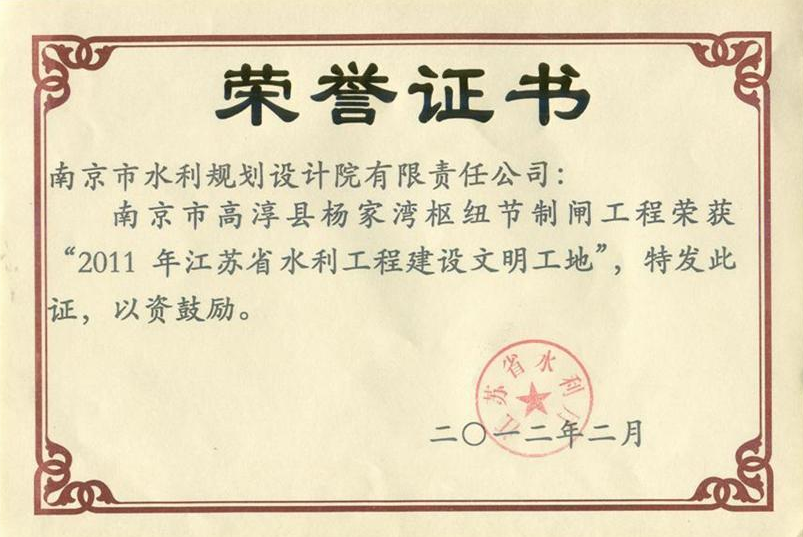 荣誉证书
南京市水利规划设计院有限责任公司：
南京市高淳县杨家湾枢纽节制闸工程荣获
“2011 年江苏省水利工程建设文明工地”，特发此
证，以资鼓励。
江苏省水利厅
二〇一二年二月